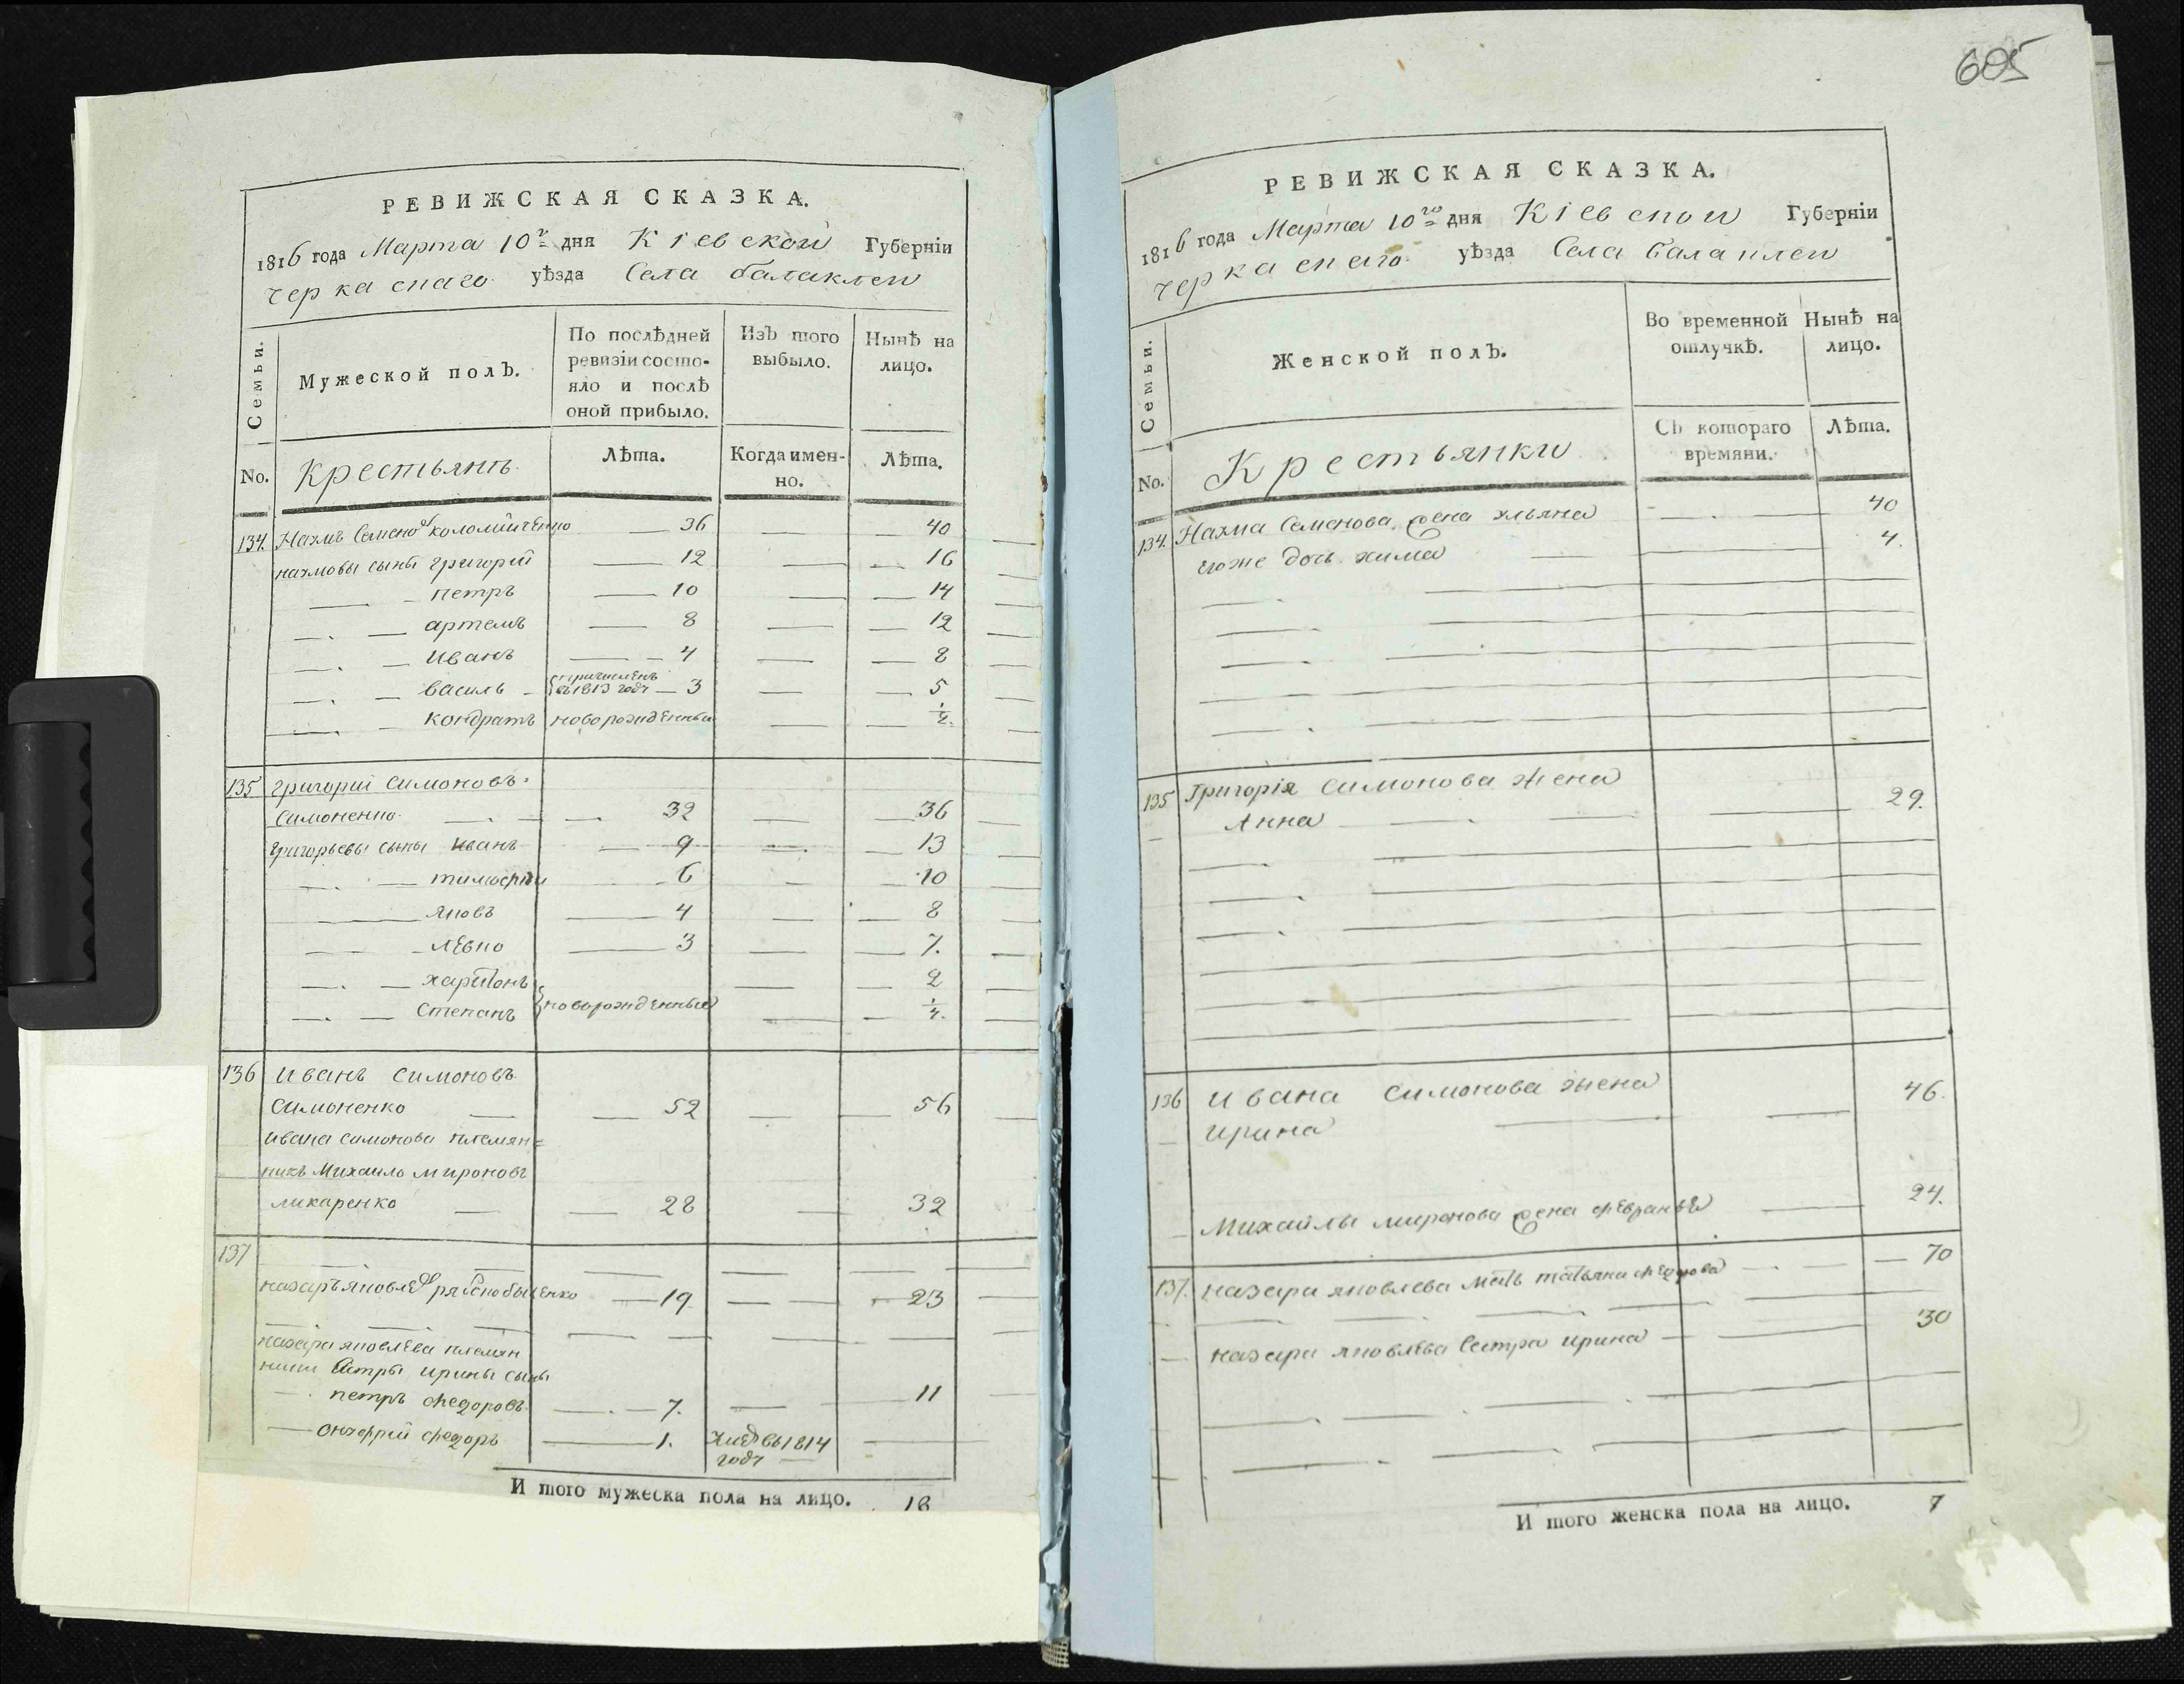 605
РЕВИЖСКАЯ СКАЗКА.
1816 года Марта 10го дня Кіевской Губерніи
черкаскаго уѣзда Села балаклеи
Семьи.
Мужеской полъ.
По послѣдней ревизіи состояло и послѣ оной прибыло.
Изъ того выбыло.
Нынѣ на лицо.
No.
Крестьянъ
Лѣта.
Когда именно.
Лѣта.
134. Наумъ Семеновъ коломійченко — 36 — — 40
наумовы сыны григорій — 12 — — 16
— — петръ — 10 — — 14
— — артемъ — 8 — — 12
— — иванъ — 4 — — 8
— — василь — причисленъ въ 1813 году — 3 — — 5
— — кондратъ новорожденный — — 1/2.
135 григорій Симоновъ
Симоненко — — 32 — — 36
григорьевы сыны иванъ — 9 — — 13
— — тимофѣй — 6 — — 10
— яковъ — 4 — — 8
— — левко — 3 — — 7.
— — харитонъ — — 2
— — степанъ новорожденные — — 1/4.
136 иванъ симоновъ
симоненко — — 52 — — 56
ивана симонова племян=
никъ Михаило мироновъ
ликаренко — — 28 — 32
137
назаръ яковлевъ — 19 — — 23
назара яковлева племян
ники сестры ирины сыны
— петръ федоровъ — 7. — 11
— онуфрій федоръ — 1. въ 1814 году —
И того мужеска пола на лицо. 18
РЕВИЖСКАЯ СКАЗКА.
1816 года Марта 10го дня Кіевской Губерніи
черкаскаго уѣзда Села балаклеи
Семьи.
Женской полъ.
Во временной отлучкѣ.
Нынѣ на лицо.
No.
Крестьянки
Съ котораго времяни.
Лѣта.
134. Наума Семенова жена ульяна — 40
егоже дочь хима — 4.
135 Григорія симонова жена
Анна — 29.
136 ивана симонова жена 46.
ирина —
Михайлы миронова жена — 24.
137. назара яковлева мать татьяна федорова — 70
назара яковлева сестра ирина — 30
И того женска пола на лицо. 7